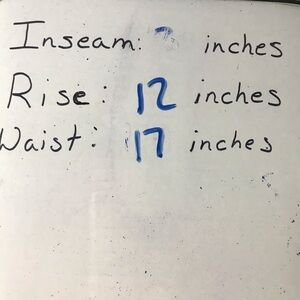 Inseam: inches
Rise: 12 inches
Waist: 17 inches